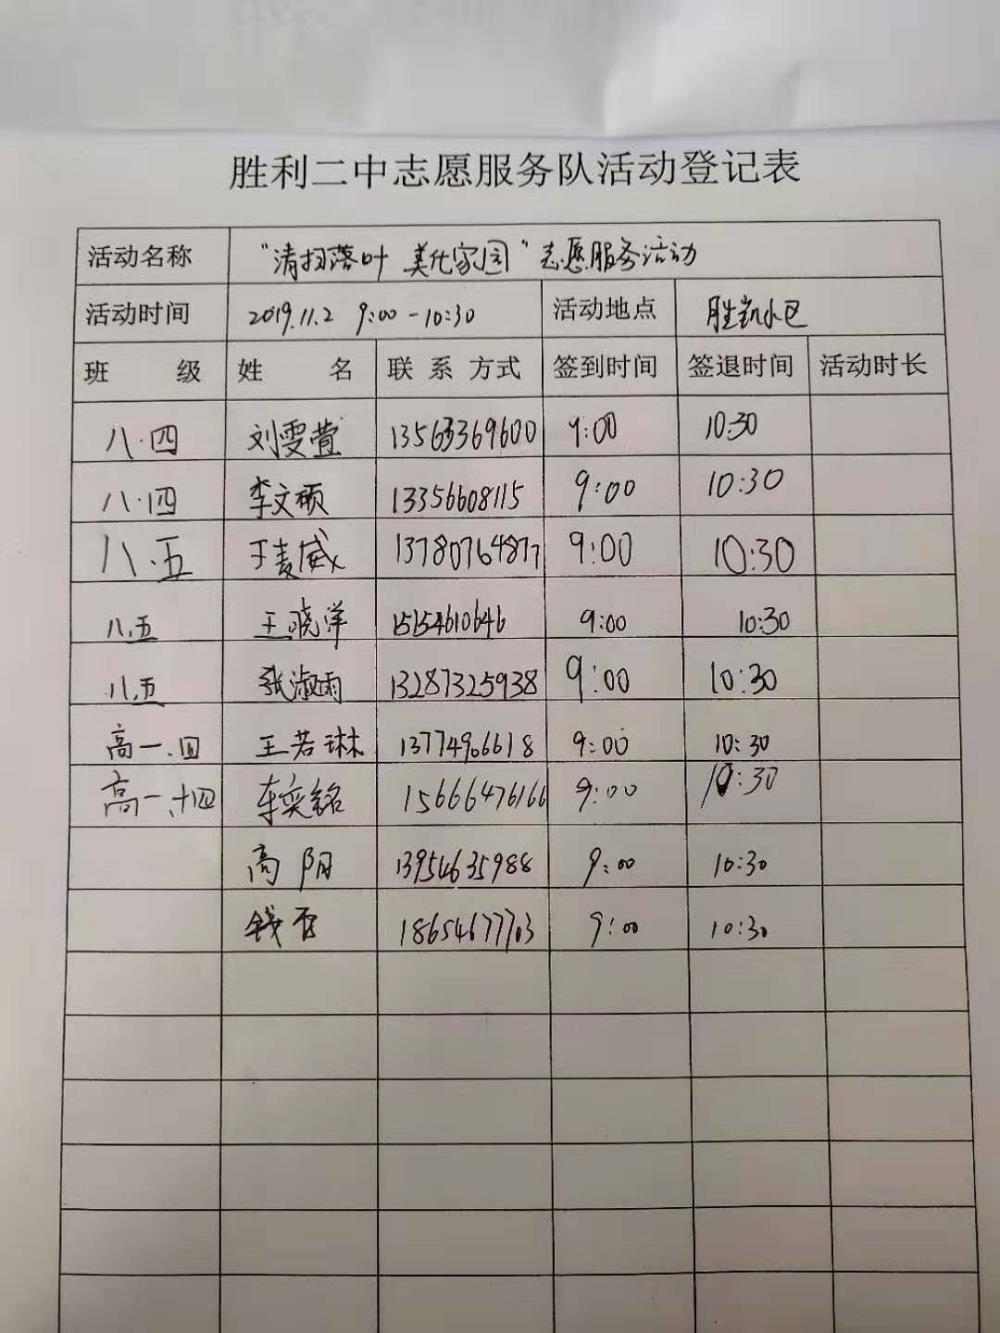 胜利二中志愿服务队活动登记表
活动名称 “清扫落叶 美化家园”志愿服务活动
活动时间 2019.11.2 9:00-10:30 活动地点 胜凯小区
班 级 姓 名 联系方式 签到时间 签退时间 活动时长
八.四 刘雯萱 13563369600 9:00 10:30
八.四 李文硕 13356608115 9:00 10:30
八.五 于麦威 13780764877 9:00 10:30
八.五 王晓洋 15154610646 9:00 10:30
八.五 张淑雨 13287325938 9:00 10:30
高一.四 王若琳 13774906618 9:00 10:30
高一.十四 车奕铭 15666476166 9:00 10:30
高阳 13954635988 9:00 10:30
钱 18654677703 9:00 10:30